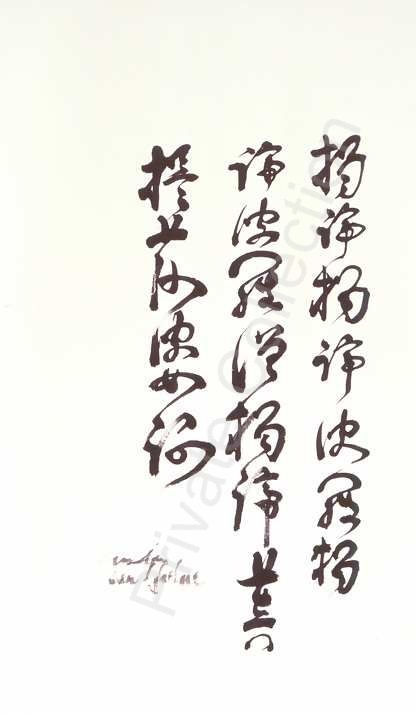 揭諦揭諦波羅揭
諦波羅僧揭諦菩
提薩婆訶
Private Collection